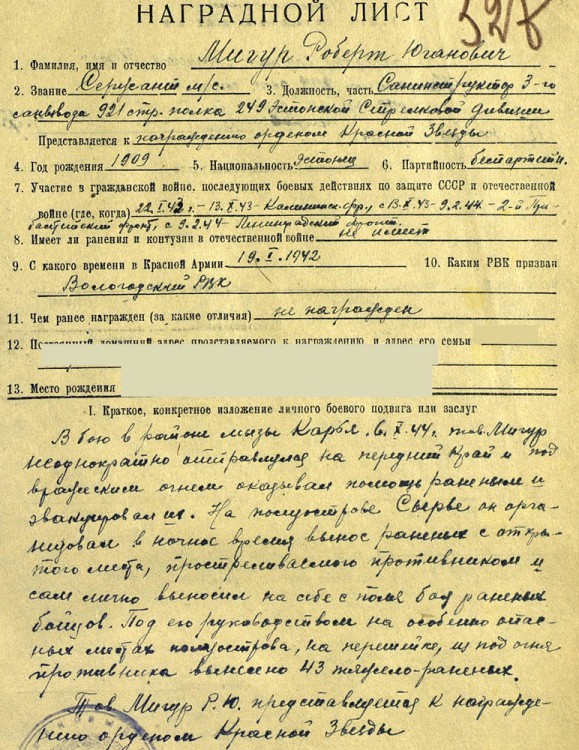 НАГРАДНОЙ ЛИСТ
328
1. Фамилия, имя и отчество Мигур Роберт Юганович
2. Звание Сержант м/с. 3. Должность, часть Санинструктор 3-го
санвзвода 921 стр. полка 249 Эстонской Стрелковой дивизии
Представляется к награждению орденом Красной Звезды
4. Год рождения 1909 5. Национальность Эстонец 6. Партийность беспартийн.
7. Участие в гражданской войне, последующих боевых действиях по защите СССР и отечественной
войне (где, когда) 22.X.42 г. – 13.X.43 – Калининск. фр., с 13.X.43 – 9.2.44 – 2-й При-
балтийский фронт, с 9.2.44 – Ленинградский фронт.
8. Имеет ли ранения и контузии в отечественной войне не имеет
9. С какого времени в Красной Армии 1942 10. Каким РВК призван
Вологодский РВК
11. Чем ранее награжден (за какие отличия) не награжден
12. Постоянный домашний адрес представляемого к награждению и адрес его семьи
13. Место рождения
I. Краткое, конкретное изложение личного боевого подвига или заслуг
В бою в районе мызы Карья 6.X.44. тов. Мигур
неоднократно отправлялся на передний край и под
вражеским огнем оказывал помощь раненым и
эвакуировал их. На полуострове Сырве он орга-
низовал в ночное время вынос раненых с откры-
того места, простреливаемого противником и
сам лично выносил на себе с поля боя раненых
бойцов. Под его руководством на особенно опас-
ных местах полуострова, на перешейке, из под огня
противника вынесено 43 тяжело-раненых.
Тов Мигур Р.Ю. представляется к награжде-
нию орденом Красной Звезды